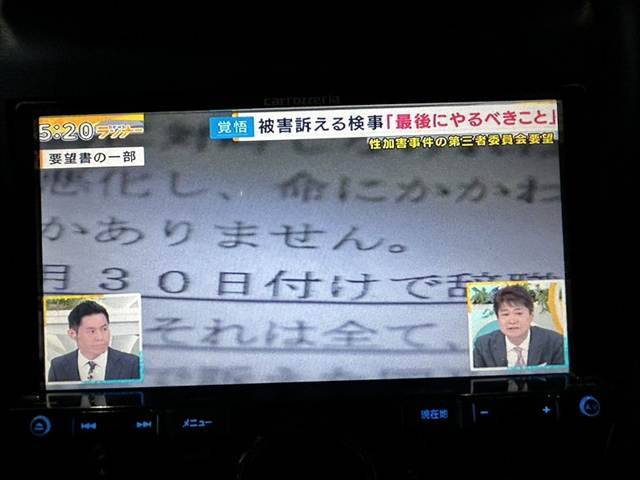 carrozzeria
5:20
ランナー
覚悟 被害訴える検事「最後にやるべきこと」
性加害事件の第三者委員会要望
要望書の一部
悪化し、命にかかわ
かありません。
月30日付けで辞職
それは全て、
メニュー
現在地
- +